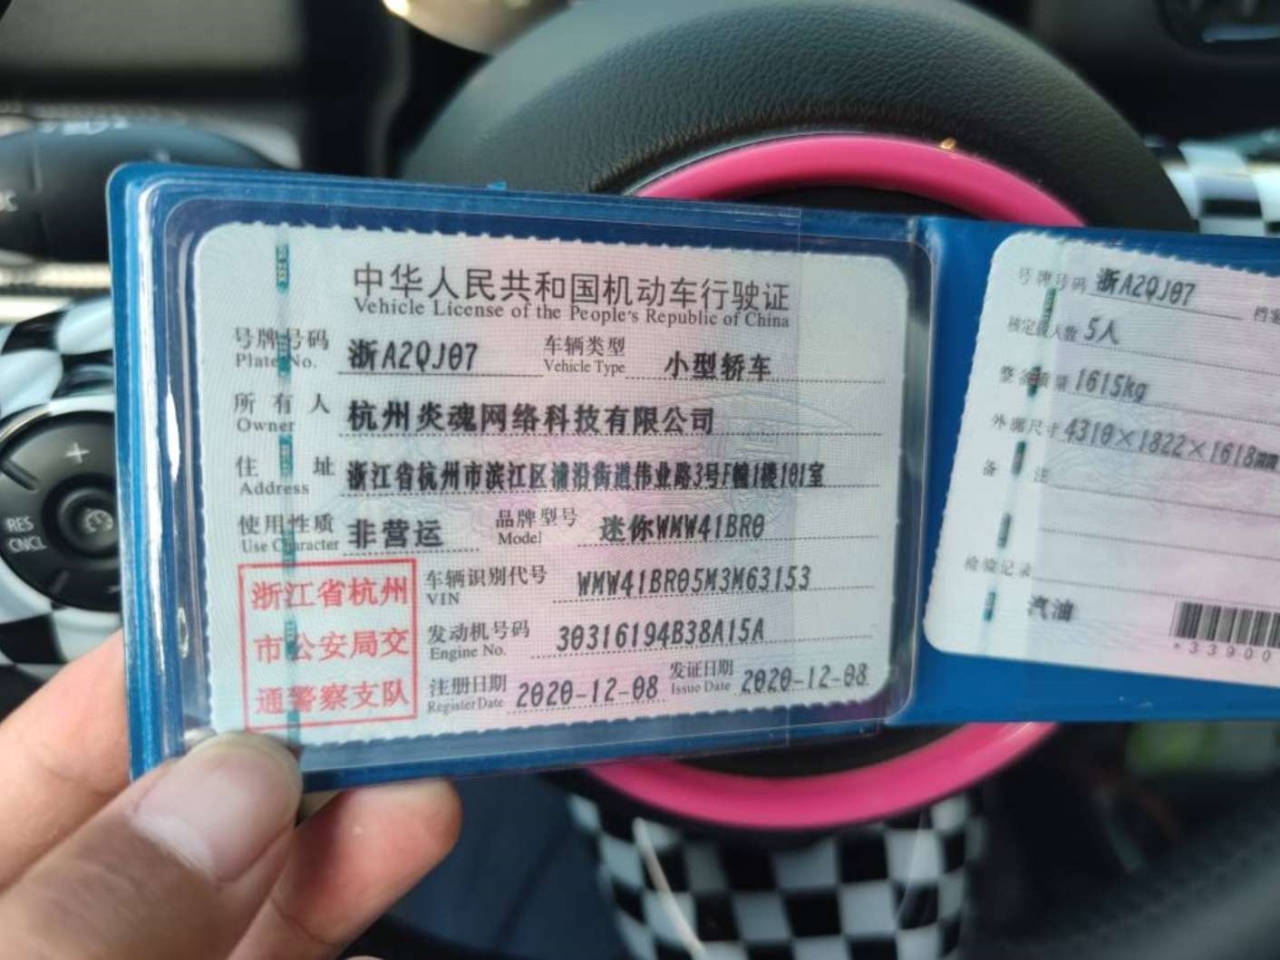 中华人民共和国机动车行驶证
Vehicle License of the People's Republic of China
号牌号码 浙A2QJ07 车辆类型 小型轿车
Plate No. Vehicle Type
所有人 杭州炎魂网络科技有限公司
Owner
住址 浙江省杭州市滨江区浦沿街道伟业路3号F幢1楼101室
Address
使用性质 非营运 品牌型号 迷你WMW41BR0
Use Character Model
浙江省杭州
市公安局交
通警察支队
车辆识别代号 WMW41BR05M3M63153
VIN
发动机号码 30316194B38A15A
Engine No.
注册日期 2020-12-08 发证日期 2020-12-08
Register Date Issue Date
号牌号码 浙A2QJ07 档案
核定载人数 5人
整备质量 1615kg
外廓尺寸 4310×1822×1618mm
备注
检验记录
汽油
*33900
RES
CNCL
+